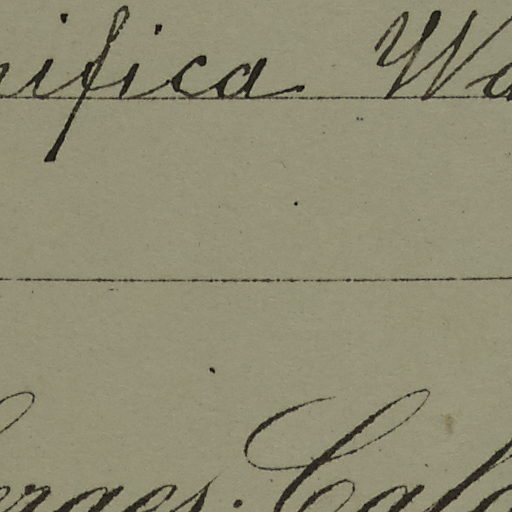 nifica Wa
erges. Cala